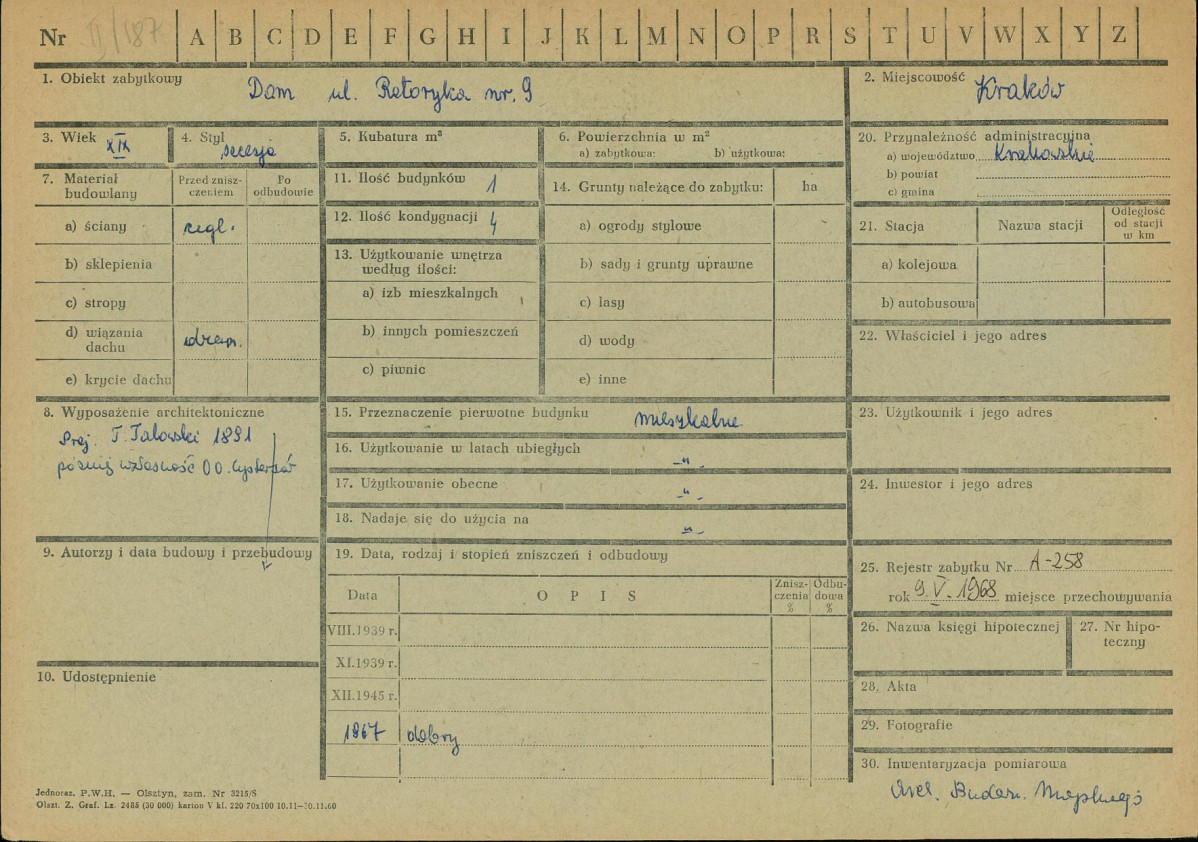 Nr II/187 A B C D E F G H I J K L M N O P R S T U V W X Y Z
1. Obiekt zabytkowy
Dom ul. Retoryka nr. 9
2. Miejscowość
Kraków
3. Wiek XIX
4. Styl
secesja
5. Kubatura m³
6. Powierzchnia w m²
a) zabytkowa: b) użytkowa:
20. Przynależność administracyjna
a) województwo Krakowskie
b) powiat
c) gmina
7. Materiał budowlany
Przed znisz-
czeniem
Po
odbudowie
a) ściany cegł.
b) sklepienia
c) stropy
d) wiązania
dachu drewn.
e) krycie dachu
11. Ilość budynków 1
12. Ilość kondygnacji 4
13. Użytkowanie wnętrza
według ilości:
a) izb mieszkalnych
b) innych pomieszczeń
c) piwnic
14. Grunty należące do zabytku: ha
a) ogrody stylowe
b) sady i grunty uprawne
c) lasy
d) wody
e) inne
21. Stacja
Nazwa stacji
Odległość
od stacji
w km
a) kolejowa
b) autobusowa
22. Właściciel i jego adres
8. Wyposażenie architektoniczne
Proj. T. Talowski 1891
później własność OO. Cystersów
9. Autorzy i data budowy i przebudowy
10. Udostępnienie
15. Przeznaczenie pierwotne budynku mieszkalne
16. Użytkowanie w latach ubiegłych -"-
17. Użytkowanie obecne -"-
18. Nadaje się do użycia na -"-
19. Data, rodzaj i stopień zniszczeń i odbudowy
Data
O P I S
Znisz-
czenia
%
Odbu-
dowa
%
VIII.1939 r.
XI.1939 r.
XII.1945 r.
1967 dobry
23. Użytkownik i jego adres
24. Inwestor i jego adres
25. Rejestr zabytku Nr A-258
rok 9.V.1968 miejsce przechowywania
26. Nazwa księgi hipotecznej
27. Nr hipo-
teczny
28. Akta
29. Fotografie
30. Inwentaryzacja pomiarowa
Arch. Budown. Miejskiego
Jednoraz. P.W.H. — Olsztyn, zam. Nr 3215/S
Olszt. Z. Graf. Lz. 2485 (30 000) karton V kl. 220 70x100 10.11—30.11.60